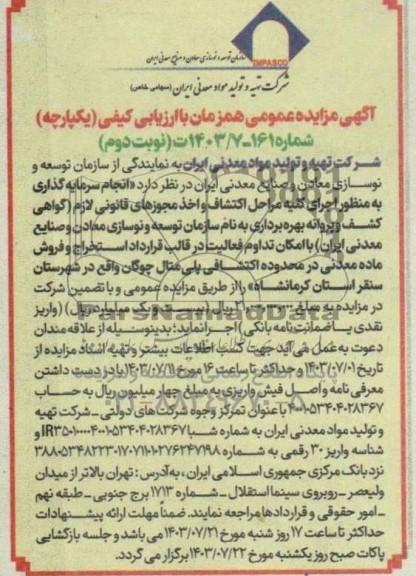 IMPASCO
سازمان توسعه و نوسازی معادن و صنایع معدنی ایران
شرکت تهیه و تولید مواد معدنی ایران (سهامی خاص)
آگهی مزایده عمومی همزمان با ارزیابی کیفی (یکپارچه)
شماره ۱۶۱-۱۴۰۳/۷ت (نوبت دوم)
شرکت تهیه و تولید مواد معدنی ایران به نمایندگی از سازمان توسعه و
نوسازی معادن و صنایع معدنی ایران در نظر دارد «انجام سرمایه گذاری
به منظور اجرای کلیه مراحل اکتشاف و اخذ مجوزهای قانونی لازم (گواهی
کشف و پروانه بهره برداری به نام سازمان توسعه و نوسازی معادن و صنایع
معدنی ایران) با امکان تداوم فعالیت در قالب قرارداد استخراج و فروش
ماده معدنی در محدوده اکتشافی پلی متال چوگان واقع در شهرستان
سنقر استان کرمانشاه» را از طریق مزایده عمومی و با تضمین شرکت
در مزایده به مبلغ ریال (واریز
نقدی یا ضمانت نامه بانکی) اجرا نماید؛ بدینوسیله از علاقه مندان
دعوت به عمل می آید جهت کسب اطلاعات بیشتر و تهیه اسناد مزایده از
تاریخ ۱۴۰۳/۰۷/۰۱ و حداکثر تا ساعت ۱۶ مورخ ۱۴۰۳/۰۷/۱۱ با در دست داشتن
معرفی نامه و اصل فیش واریزی به مبلغ چهار میلیون ریال به حساب
۴۰۰۱۰۵۳۴۰۴۰۲۸۳۶۷ با عنوان تمرکز وجوه شرکت های دولتی - شرکت تهیه
و تولید مواد معدنی ایران به شماره شبا و
شناسه واریز ۳۰ رقمی به شماره
نزد بانک مرکزی جمهوری اسلامی ایران، به آدرس: تهران بالاتر از میدان
ولیعصر - روبروی سینما استقلال - شماره ۱۷۱۳ برج جنوبی - طبقه نهم
- امور حقوقی و قراردادها مراجعه نمایند. ضمناً مهلت ارائه پیشنهادات
حداکثر تا ساعت ۱۷ روز شنبه مورخ ۱۴۰۳/۰۷/۲۱ می باشد و جلسه بازگشایی
پاکات صبح روز یکشنبه مورخ ۱۴۰۳/۰۷/۲۲ برگزار می گردد.
ParsNamadData